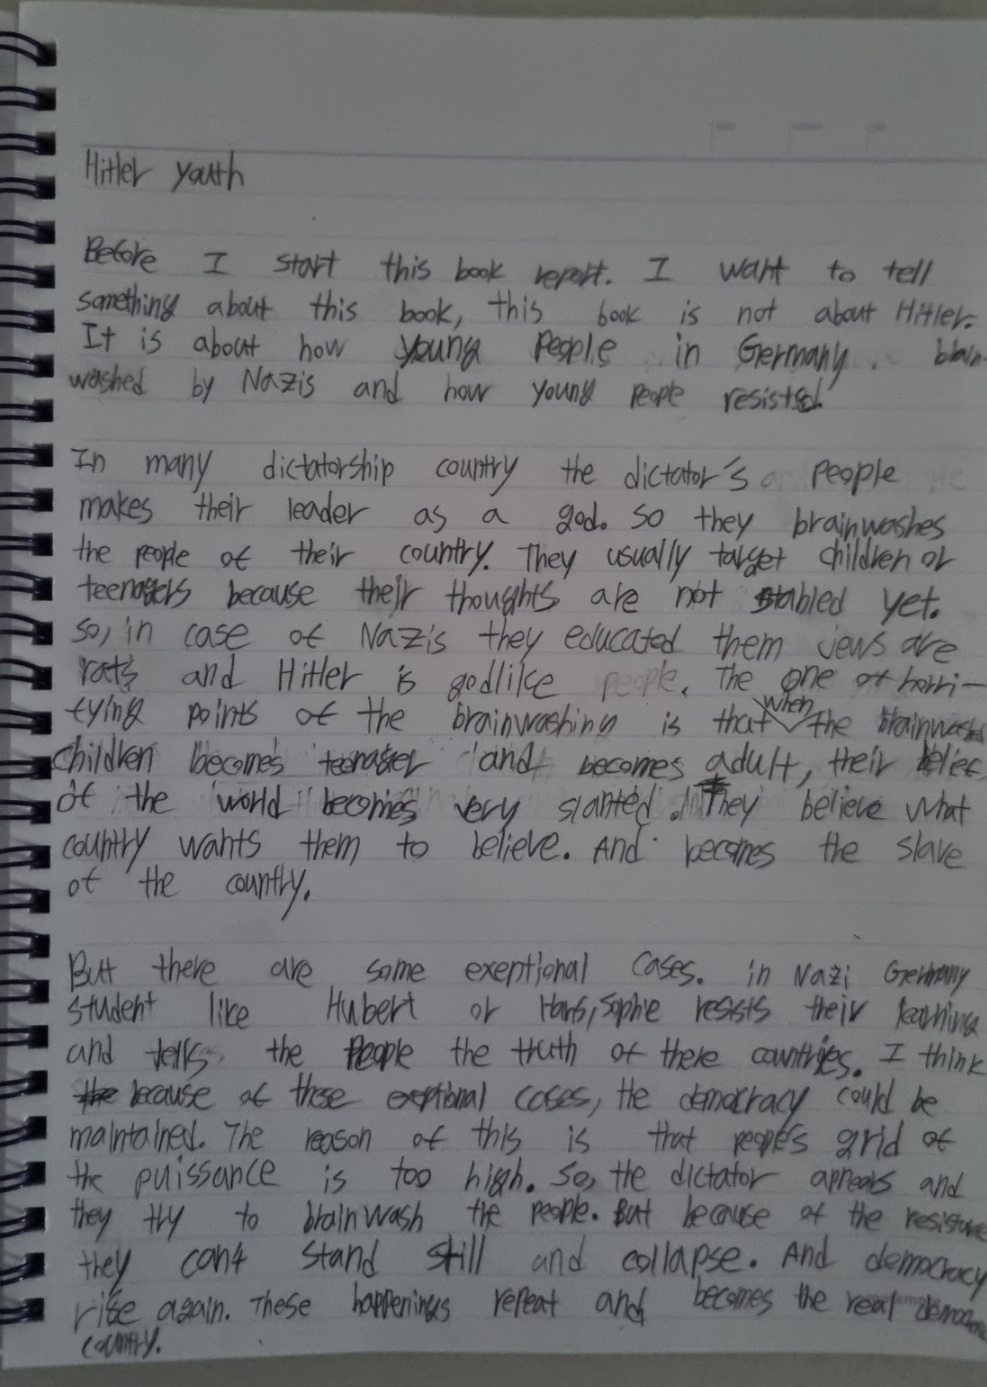 Hitler youth
Before I start this book report. I want to tell
something about this book, this book is not about Hitler.
It is about how young People in Germany. brain
washed by Nazis and how young people resisted.
In many dictatorship country the dictator's people
makes their leader as a god. so they brainwashes
the people of their country. They usually target children or
teenagers because their thoughts are not stabled yet.
so, in case of Nazis they educated them jews are
rats and Hitler is godlike people. The one of horri-
fying points of the brainwashing is that when the brainwash
children becomes teenager and becomes adult, their belief
of the world becomes very slanted. They believe what
country wants them to believe. And becomes the slave
of the country.
But there are some exeptional cases. in Nazi Germany
student like Hubert or Hans, Sophie resists their learning
and tells the People the truth of there countries. I think
because of these exeptional cases, the democracy could be
maintained. The reason of this is that people's grid of
the puissance is too high. so, the dictator appears and
they try to brainwash the people. But because of the resistance
they can't stand still and collapse. And democracy
rise again. These happenings repeat and becomes the real
country.